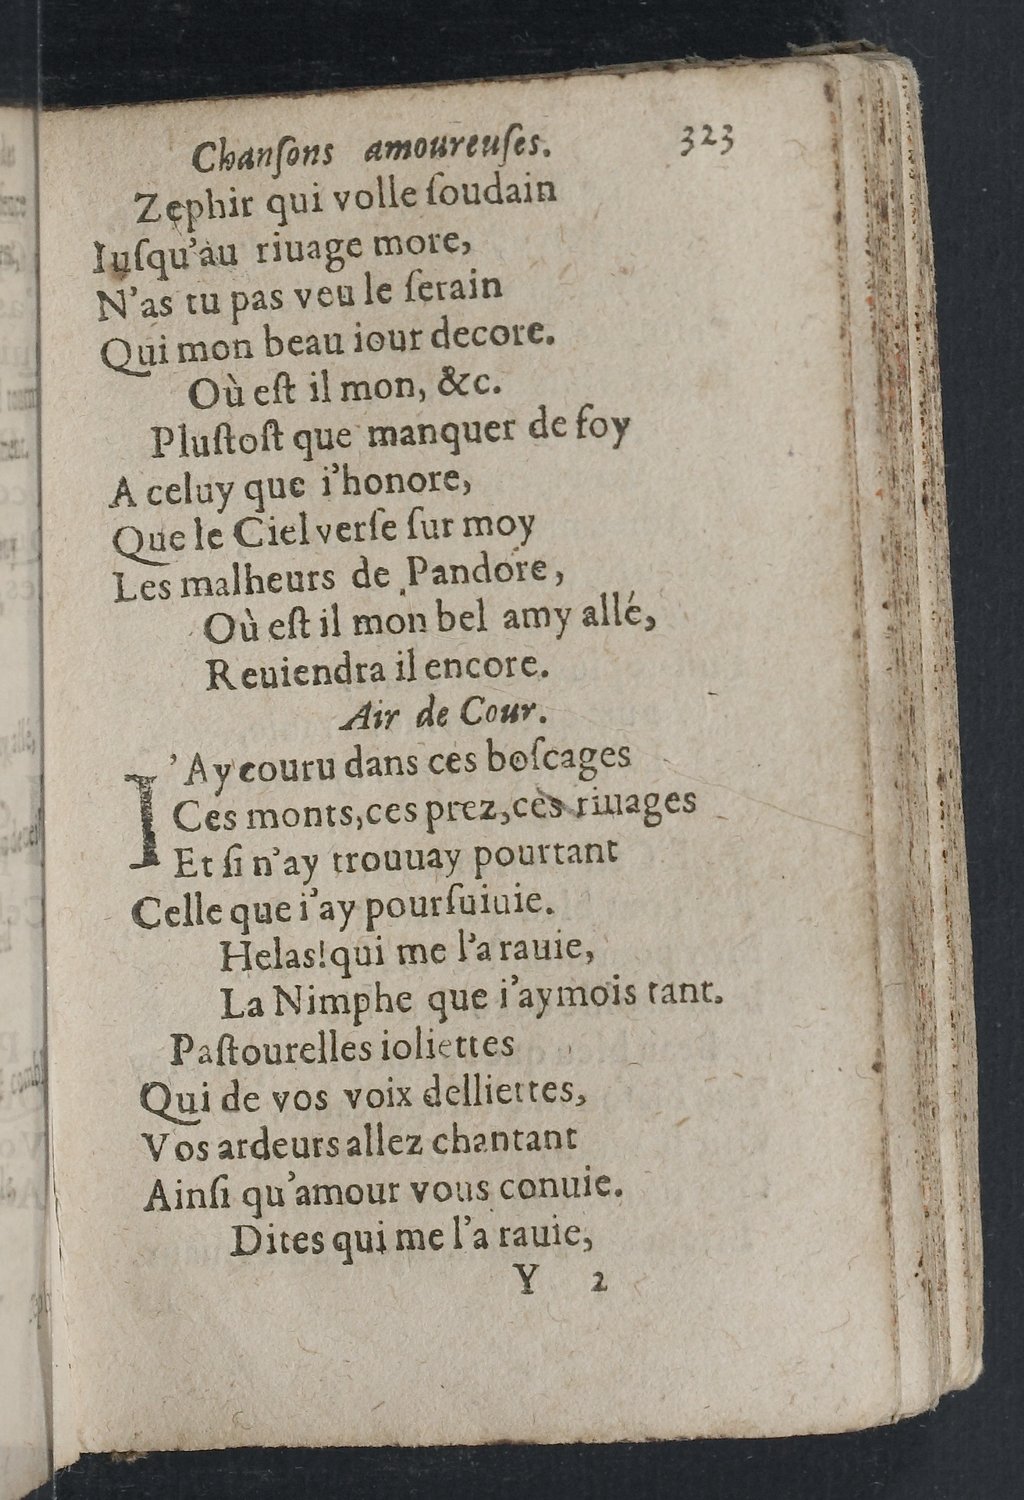 Chanſons amoureuſes. 323
Zephir qui volle ſoudain
Iuſqu'au riuage more,
N'as tu pas veu le ſerain
Qui mon beau iour decore.
Où eſt il mon, &c.
Pluſtoſt que manquer de foy
A celuy que i'honore,
Que le Ciel verſe ſur moy
Les malheurs de Pandore,
Où eſt il mon bel amy allé,
Reuiendra il encore.
Air de Cour.
I'Ay couru dans ces boſcages
Ces monts, ces prez, ces riuages
Et ſi n'ay trouuay pourtant
Celle que i'ay pourſuiuie.
Helas! qui me l'a rauie,
La Nimphe que i'aymois tant.
Paſtourelles ioliettes
Qui de vos voix delliettes,
Vos ardeurs allez chantant
Ainſi qu'amour vous conuie.
Dites qui me l'a rauie,
Y 2